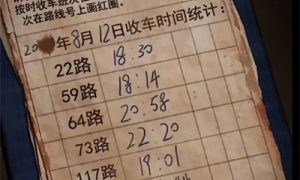 按时收车班次
次在路线号上画红圈。
20 年8月12日收车时间统计:
22路 18:30
59路 18:14
64路 20:58
73路 22:20
117路 19:01